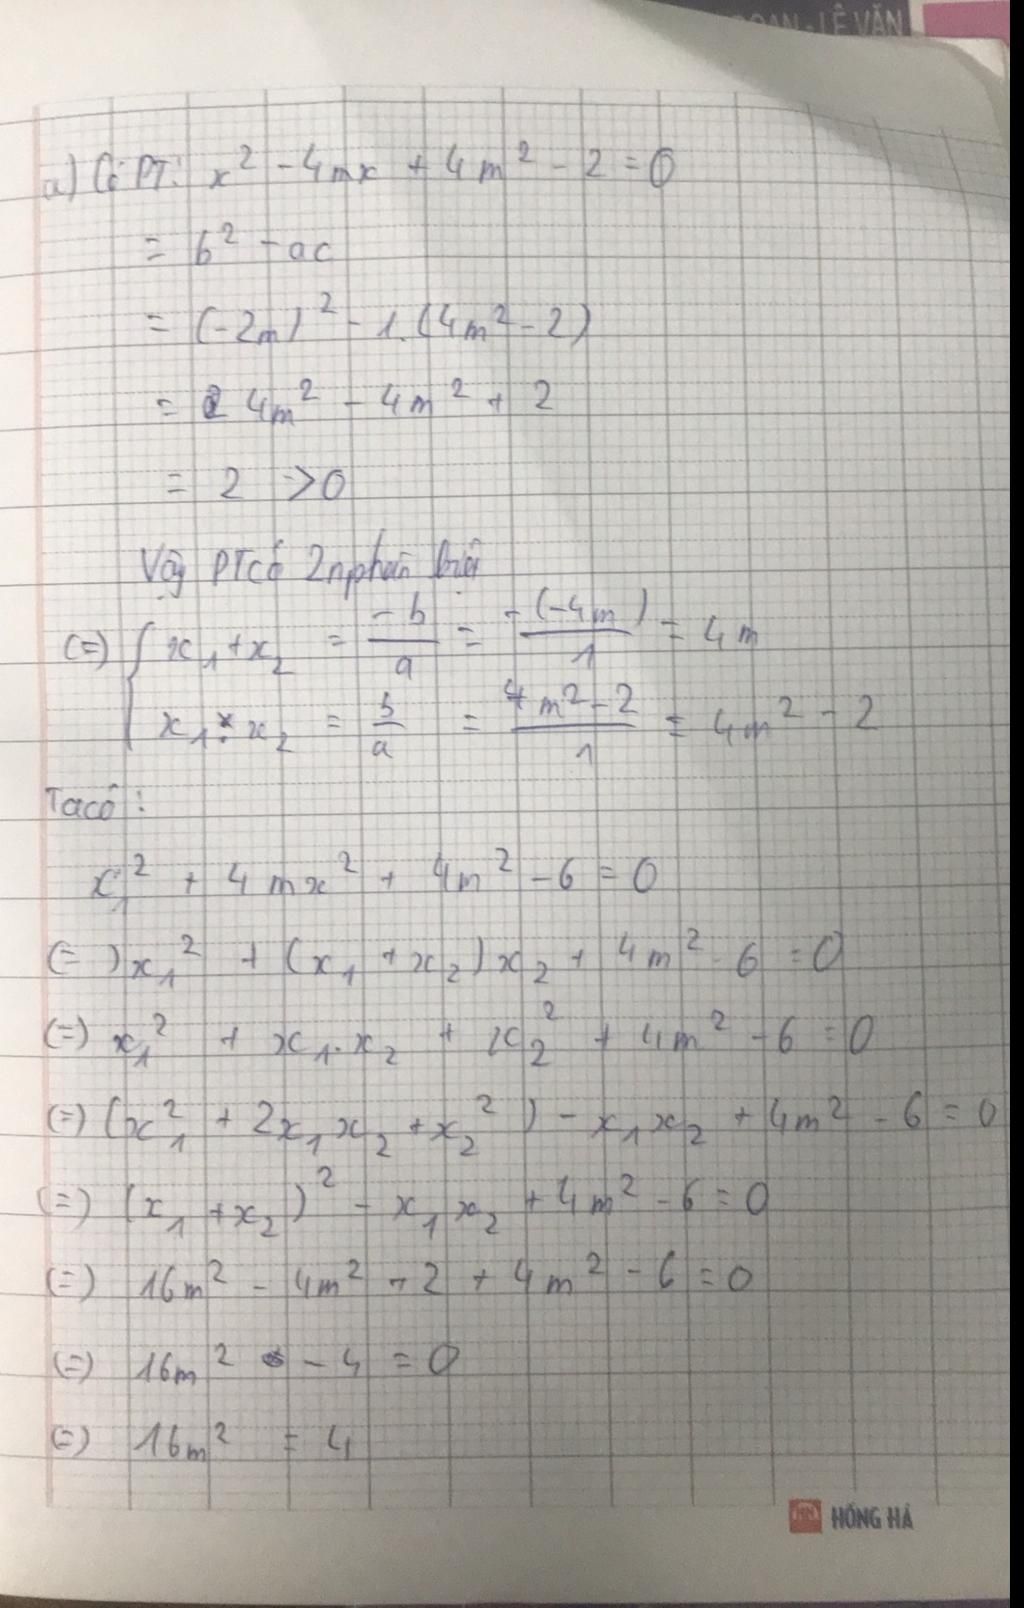 ĐOAN - LÊ VĂN
a) Có PT: x² - 4mx + 4m² - 2 = 0
= b² - ac
= (-2m)² - 1.(4m² - 2)
= 4m² - 4m² + 2
= 2 > 0
Vậy PT có 2n phân biệt
(=) { x₁ + x₂ = -b/a = -(-4m)/1 = 4m
x₁ . x₂ = b/a = 4m² - 2/1 = 4m² - 2
Ta có:
x₁² + 4mx² + 4m² - 6 = 0
(=) x₁² + (x₁ + x₂)x₂ + 4m² - 6 = 0
(=) x₁² + x₁.x₂ + x₂² + 4m² - 6 = 0
(=) (x₁² + 2x₁x₂ + x₂²) - x₁x₂ + 4m² - 6 = 0
(=) (x₁ + x₂)² - x₁x₂ + 4m² - 6 = 0
(=) 16m² - 4m² + 2 + 4m² - 6 = 0
(=) 16m² - 4 = 0
(=) 16m² = 4
HỒNG HÀ